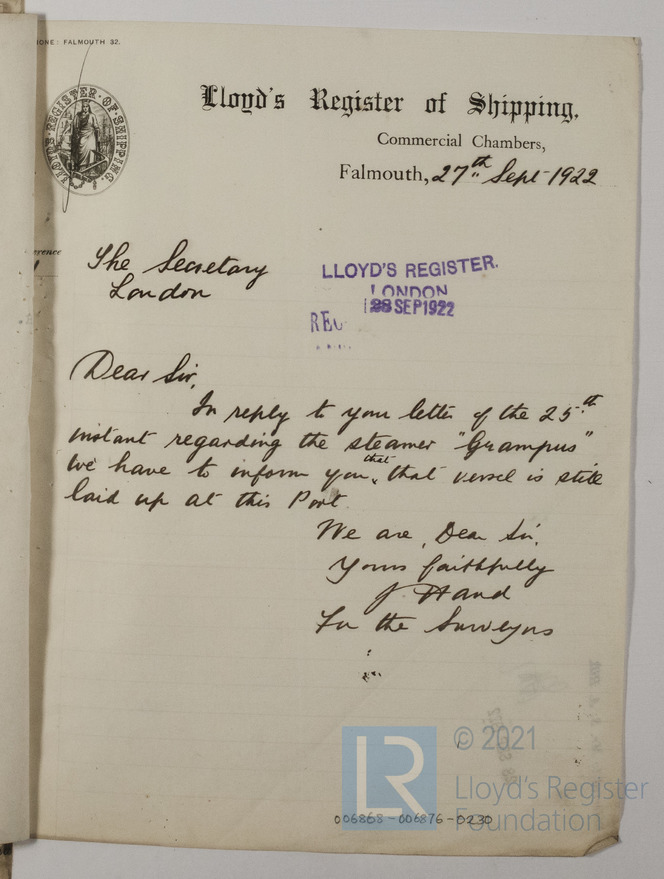 ONE: FALMOUTH 32.
LLOYD'S REGISTER OF SHIPPING
Lloyd's Register of Shipping,
Commercial Chambers,
Falmouth, 27th Sept 1922
erence
The Secretary
London
LLOYD'S REGISTER.
LONDON
28 SEP 1922
REC
Dear Sir,
In reply to your letter of the 25th
instant regarding the steamer "Grampus"
we have to inform you that that vessel is still
laid up at this Port.
We are, Dear Sir,
Yours faithfully
J Hand
For the Surveyors
© 2021
LR
Lloyd's Register
Foundation
006868-006876-0230